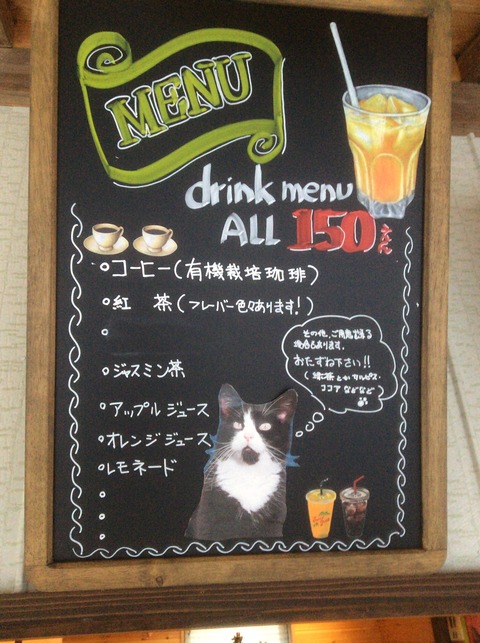 MENU
drink menu
ALL 150えん
コーヒー(有機栽培珈琲)
紅 茶(フレーバー色々あります!)
ジャスミン茶
アップルジュース
オレンジジュース
レモネード
その他、ご用意出来る
場合もあります。
おたずね下さい!!
(抹茶とかカルピス・
ココアなどなど